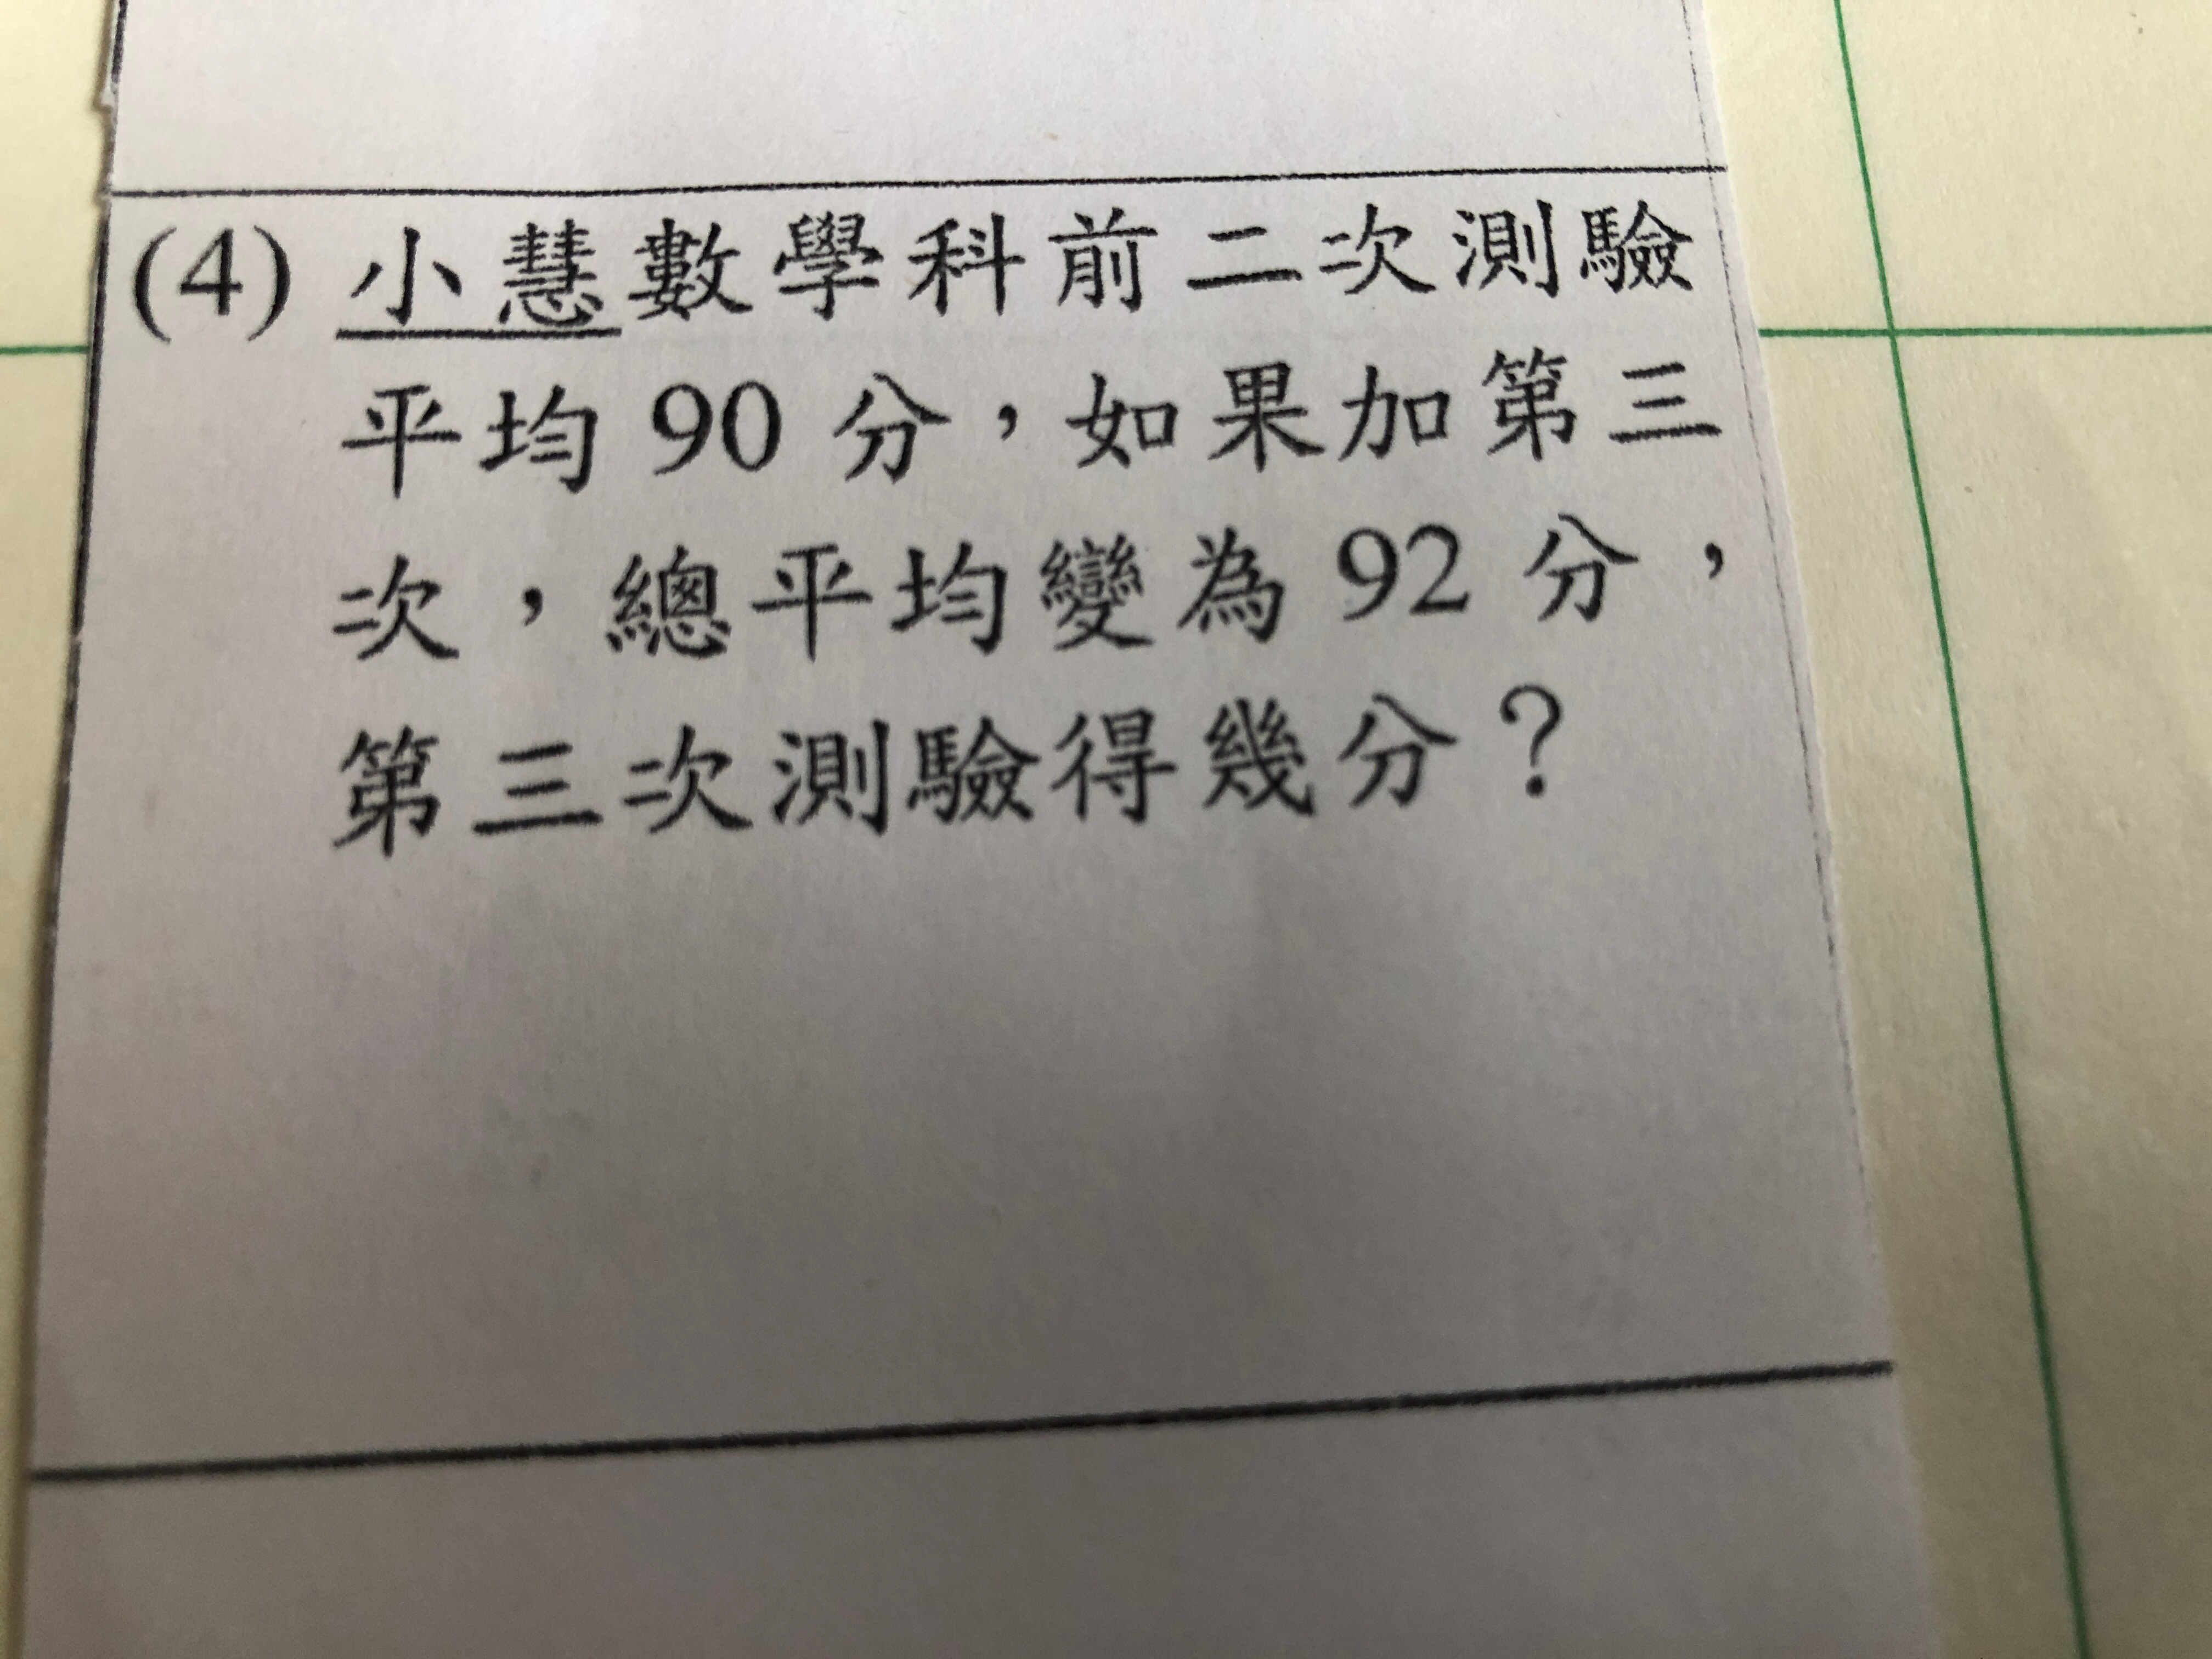 (4) 小慧數學科前二次測驗
平均 90 分，如果加第三
次，總平均變為 92 分，
第三次測驗得幾分？